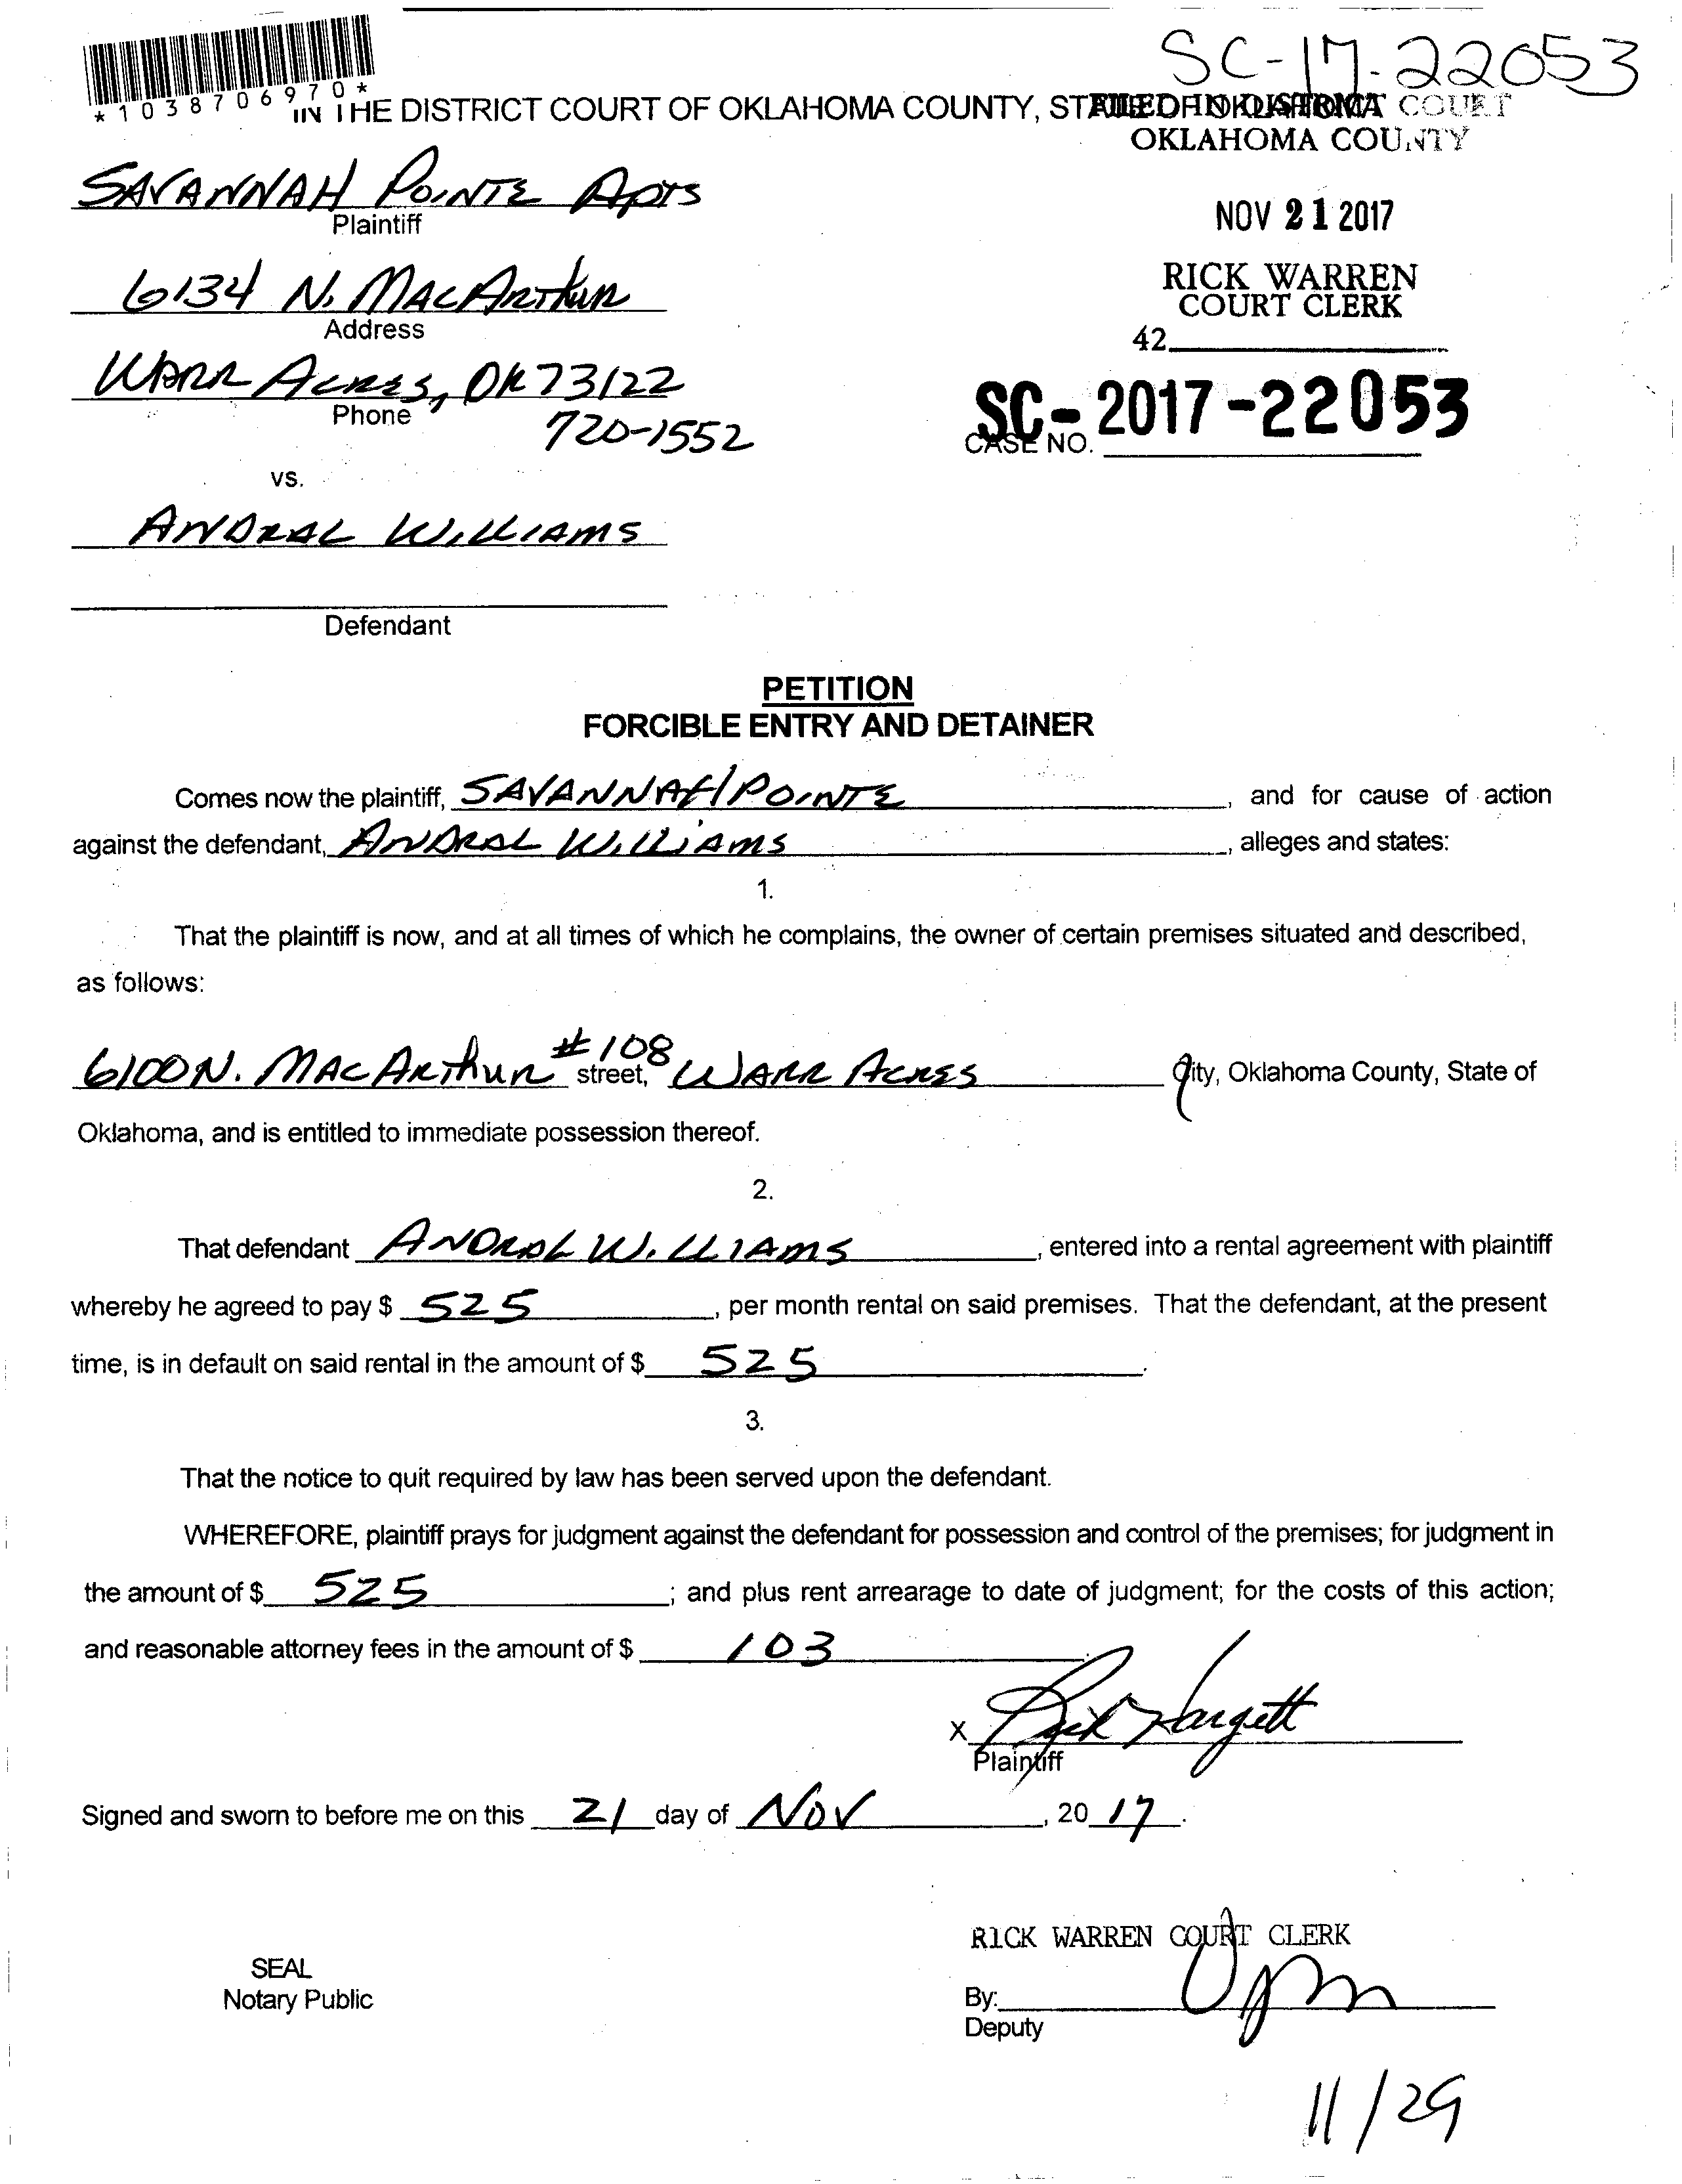 SC-17-22053
*1038706970*
IN THE DISTRICT COURT OF OKLAHOMA COUNTY, STATE OF OKLAHOMA
FILED IN DISTRICT COURT
OKLAHOMA COUNTY
SAVANNAH POINTE Apts
Plaintiff
NOV 21 2017
6134 N. MACARThUR
Address
RICK WARREN
COURT CLERK
42
WARR ACRES, OK 73122
Phone
720-1552
SC-2017-22053
CASE NO.
vs.
ANDRAL WILLIAMS
Defendant
PETITION
FORCIBLE ENTRY AND DETAINER
Comes now the plaintiff, SAVANNAH POINTE, and for cause of action
against the defendant, ANDRAL WILLIAMS, alleges and states:
1.
That the plaintiff is now, and at all times of which he complains, the owner of certain premises situated and described,
as follows:
6100 N. MACARThUR #108 street, WARR ACRES City, Oklahoma County, State of
Oklahoma, and is entitled to immediate possession thereof.
2.
That defendant ANDRAL WILLIAMS, entered into a rental agreement with plaintiff
whereby he agreed to pay $ 525, per month rental on said premises. That the defendant, at the present
time, is in default on said rental in the amount of $ 525.
3.
That the notice to quit required by law has been served upon the defendant.
WHEREFORE, plaintiff prays for judgment against the defendant for possession and control of the premises; for judgment in
the amount of $ 525; and plus rent arrearage to date of judgment; for the costs of this action;
and reasonable attorney fees in the amount of $ 103.
x Hargett
Plaintiff
Signed and sworn to before me on this 21 day of NOV, 20 17.
RICK WARREN COURT CLERK
SEAL
Notary Public
By:
Deputy
11/29